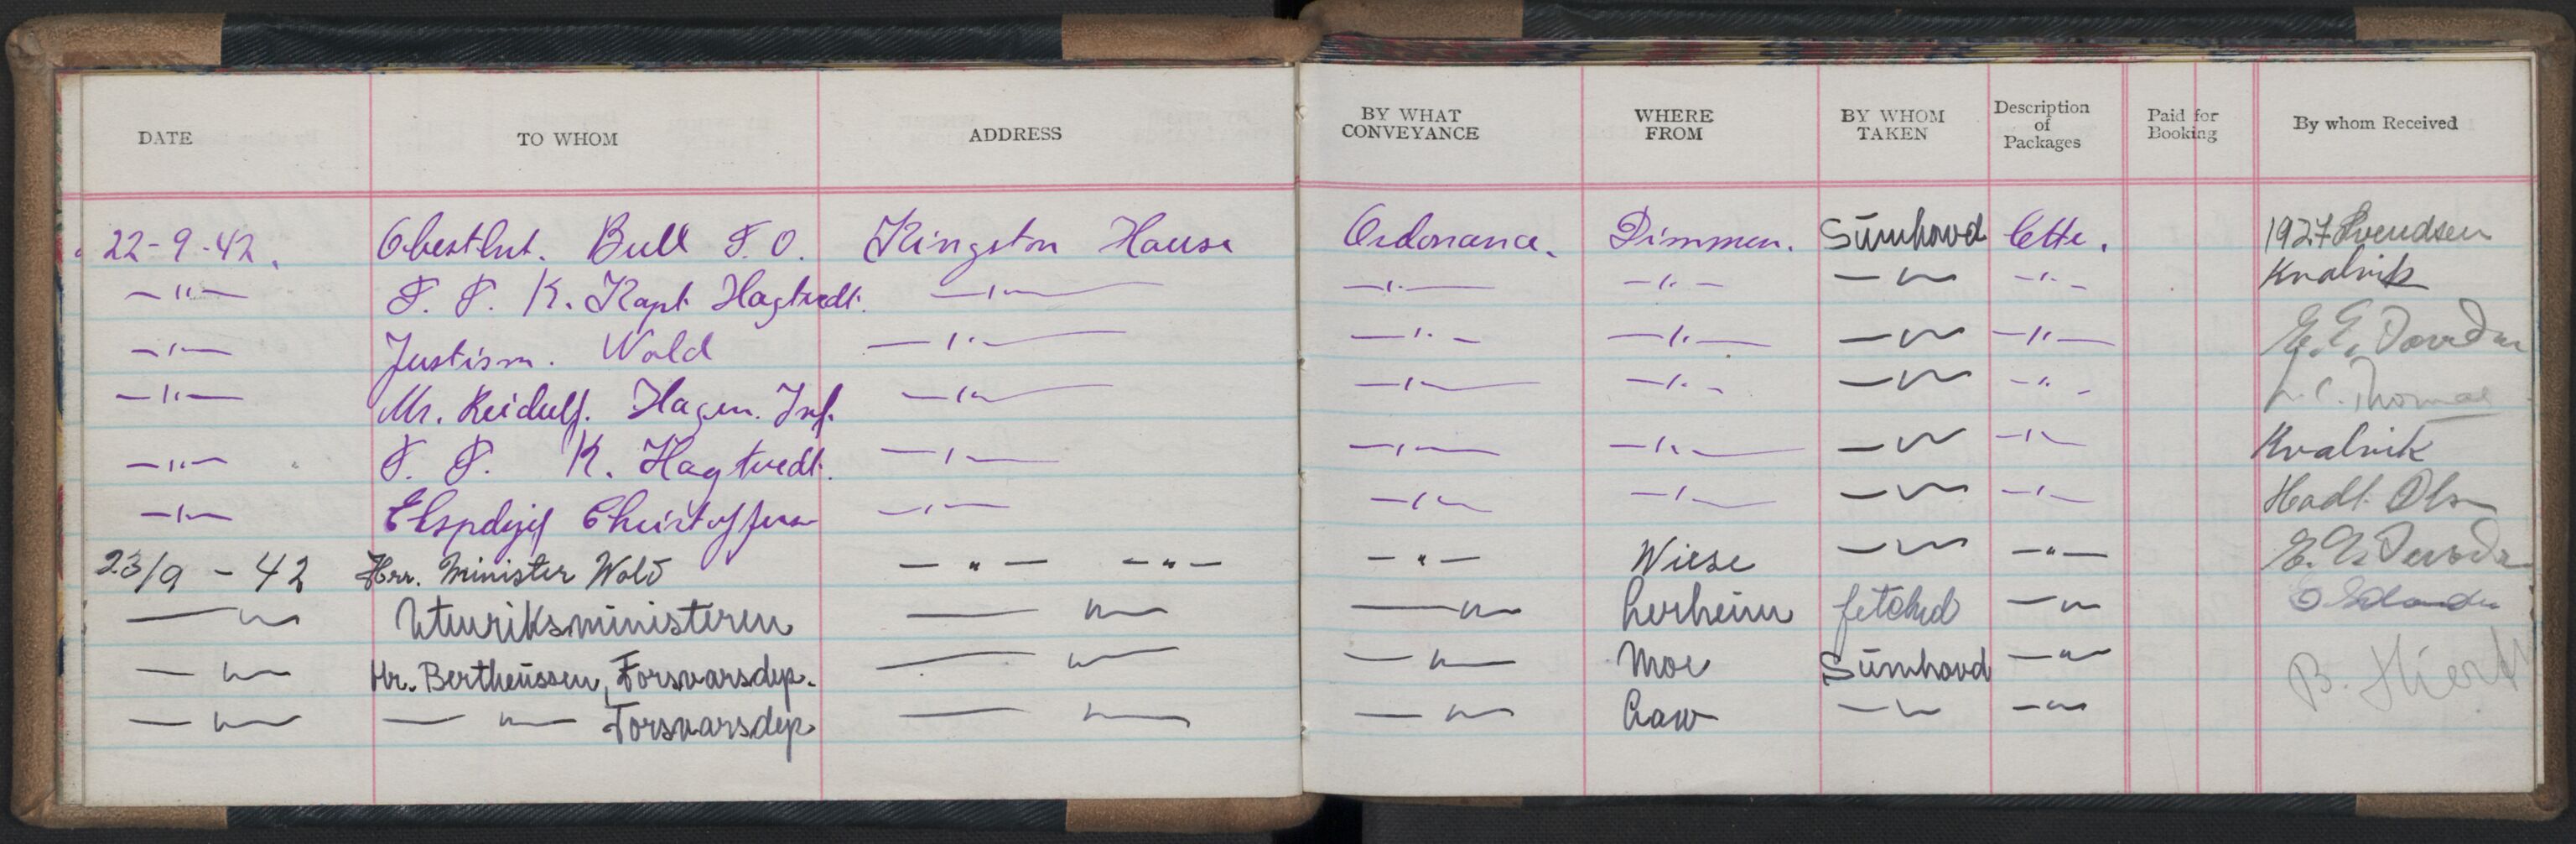 DATE TO WHOM ADDRESS BY WHAT CONVEYANCE WHERE FROM BY WHOM TAKEN Description of Packages Paid for Booking By whom Received
22-9-42. Obestlnt. Bull F.O. Kingston House Ordonance. Dimmen. Sumhovd 1927 Svendsen
—"— F. P. K. Kapt. Hagtvedt. —"— —"— —"— —"— —"— Kvalvik
—"— Justism. Wold —"— —"— —"— —"— —"—
—"— Mr. Reidulf. Hagen. Inf. —"— —"— —"— —"— —"— Thomas
—"— F. P. K. Hagtvedt. —"— —"— —"— —"— —"— Kvalvik
—"— Christoffersen —"— —"— —"— —"— —"— Olsen
23/9 - 42 Hrr. Minister Wold —"— —"— —"— Wiese —"— —"—
—"— Utenriksministeren —"— —"— Lerheim fetched —"—
—"— Hr. Bertheussen, Forsvarsdep. —"— —"— Moe Sumhovd —"— B.
—"— —"— Forsvarsdep. —"— —"— —"— —"—